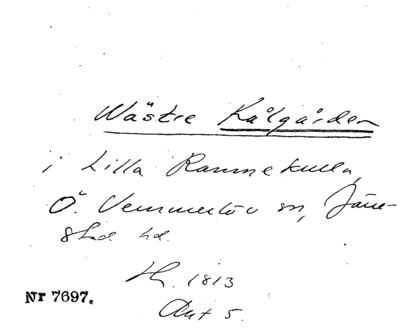 Wästre Kålgården
i Lilla Rammekulla,
Ö. Vemmerlöv sn, Järre-
stad hd.
H. 1813
Akt 5.
Nr 7697.